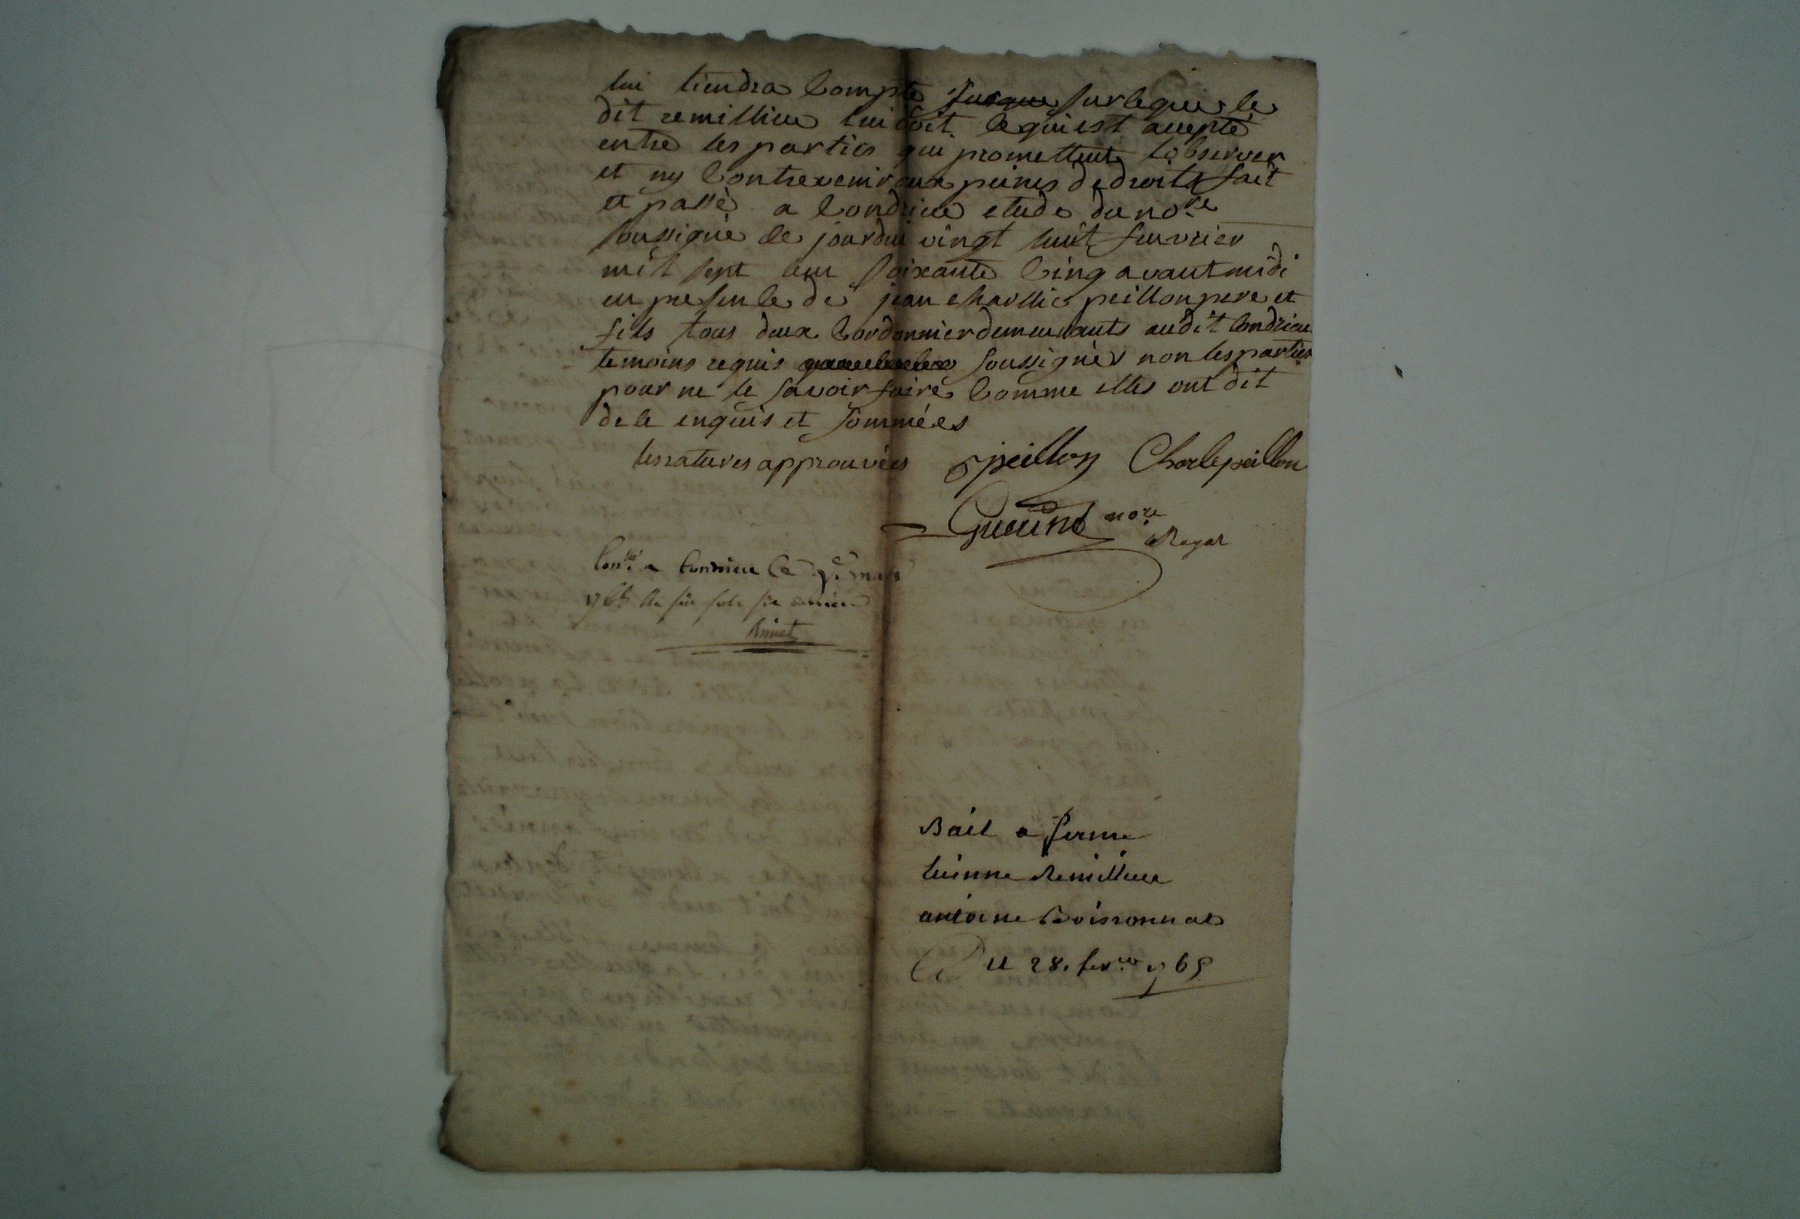 lui tiendra Compte sur ce que le
dit remillieu lui doit. Ce qui est accepté
entre les parties qui promettent l'observer
et ny Contrevenir aux peines de droits fait
et passé a Condrieu etude du no.re
soussigné le jourdui vingt huit feuvrier
mil sept cent soixante Cinq avant midi
en presence de jean charlles peillon pere et
fils tous deux Cordonnier demeurants audit Condrieu
temoins requis soussignés non les parties
pour ne le savoir faire Comme elles ont dit
de ce enquis et sommées
les ratures approuvées peillon Charle peillon
Guerin no.re Royal
Con.lé a Condrieu Ce mars
1765 six sols six deniers
Bail a ferme
Remillieu
antoine Boissonnat
le 28. fev.ier 1765